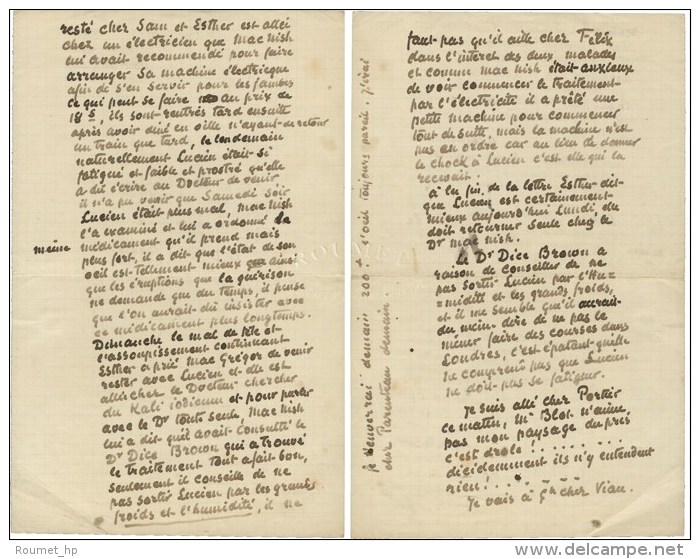 resté chez Sam et Esther est allei
chez un électricien que Mac Nish
lui avait recommendé pour faire
arranger sa machine électrique
afin de s'en servir pour les jambes
ce qui peut se faire au prix de
18 s, ils sont rentrés tard ensuite
après avoir diné en ville n'ayant de retour
un train que tard, le lendemain
naturellement Lucien était si
fatigué et faible et prostré qu'elle
a dû écrire au Docteur de venir
il n'a pu venir que Samedi soir
Lucien était plus mal, Mac Nish
l'a examiné et lui a ordonné le
même médicament qu'il prend mais
plus fort, il a dit que l'état de son
œil est tellement mieux ainsi
que les éruptions que la guérison
ne demande que du temps, il pense
que l'on aurait dû insister avec
ce médicament plus longtemps.
Dimanche le mal de tête et
l'assoupissement continuant
Esther a prié Mac Grégor de venir
rester avec Lucien et elle est
allée chez le Docteur chercher
du Kali iodicum et pour parler
avec le Dr toute seule, Mac Nish
lui a dit qu'il avait consulté le
Dr Dice Brown qui a trouvé
le traitement tout afait bon,
seulement il conseille de ne
pas sortir Lucien par les grands
froids et l'humidité, il ne
je t'enverrai demain 200 f s'oeil toujours pareil. j'irai
chez Parenteau demain.
faut pas qu'il aille chez Felix
dans l'interet des deux malades
et comme Mac Nish était anxieux
de voir commencer le traitement
par l'électricité il a prêté une
petite machine pour commencer
tout de suite, mais la machine n'est
pas en ordre car au lieu de donner
le chock à Lucien c'est elle qui la
recevait.
à la fin de la lettre Esther dit
que Lucien est certainement
mieux aujourd'hui Lundi, elle
doit retourner seule chez le
Dr Mac Nish.
Le Dr Dice Brown a
raison de conseiller de ne
pas sortir Lucien par l'Hu=
=midité et les grands froids,
et il me semble qu'il aurait
du moins dire de ne pas le
mener faire des courses dans
Londres, c'est épatant qu'elle
ne comprend pas que Lucien
ne doit pas se fatiguer.
Je suis allé chez Portier
ce matin, Mr Blot n'aime
pas mon paysage du prix
c'est drole . . . . . . . . .
décidemment ils n'y entendent
rien! . . . . . . . .
Je vais à 9h chez Viau.
Roumet_hp
www.delcampe.net